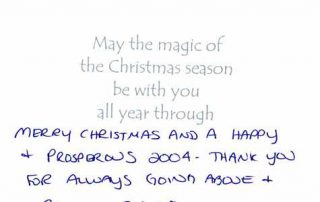 May the magic of
the Christmas season
be with you
all year through
MERRY CHRISTMAS AND A HAPPY
+ PROSPEROUS 2004 - THANK YOU
FOR ALWAYS GOING ABOVE +